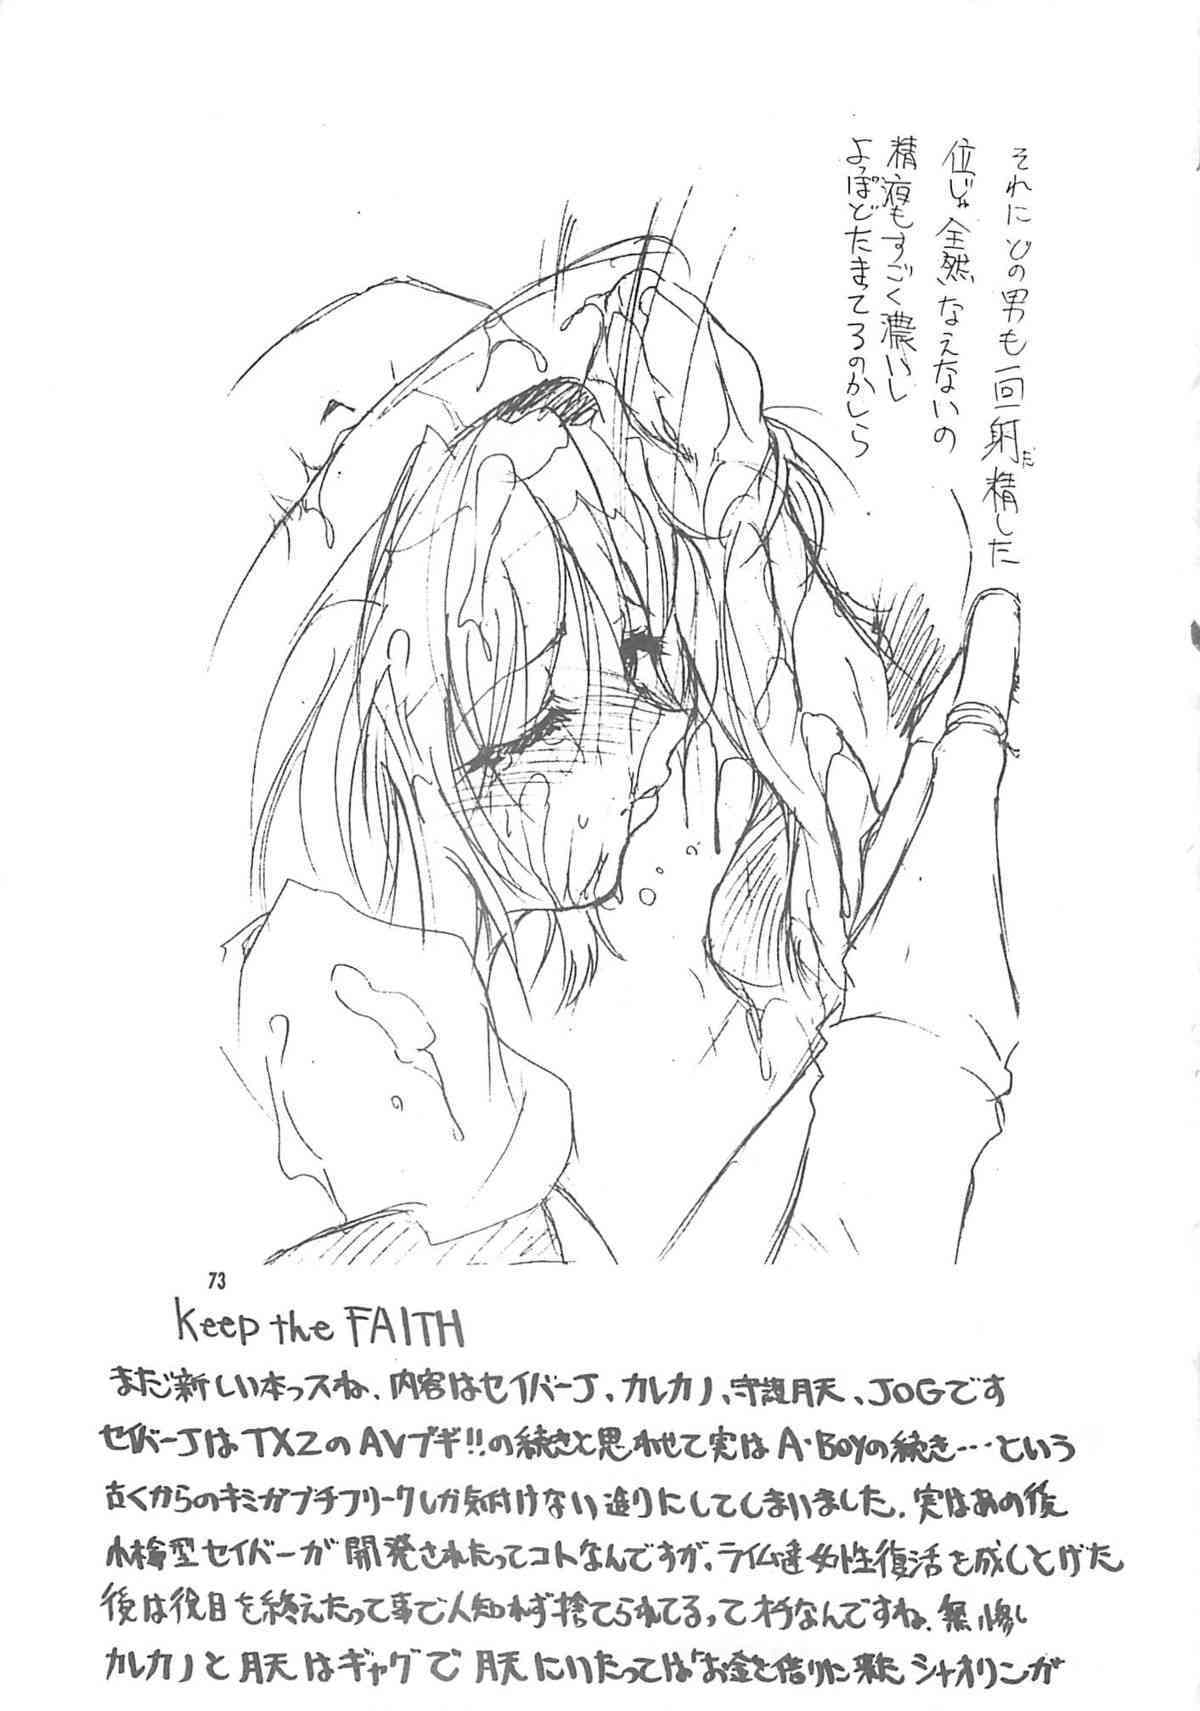 それにどの男も一回射精した
だ
位じゃ全然なえないの
精液もすごく濃いし
よっぽどたまてろのかしら
73
Keep the FAITH
まだ新しい本っスね、内容はセイバーJ、カレカノ、守護月天、JOGです
セイバーJはTX2のAVブギ!!の続きと思わせて実はA・Boyの続き…という
古くからのキミカプチフリークしか気付けない造りにしてしまいました。実はあの後
小検型セイバーが開発されたってコトなんですが、ライム達女性復活を成しとげた
後は役目を終えたって事で人知れず捨てられてるってオチなんですね。無惨し
カレカノと月天はギャグで月天にいたっては「お金を借りに来たシャオリンが